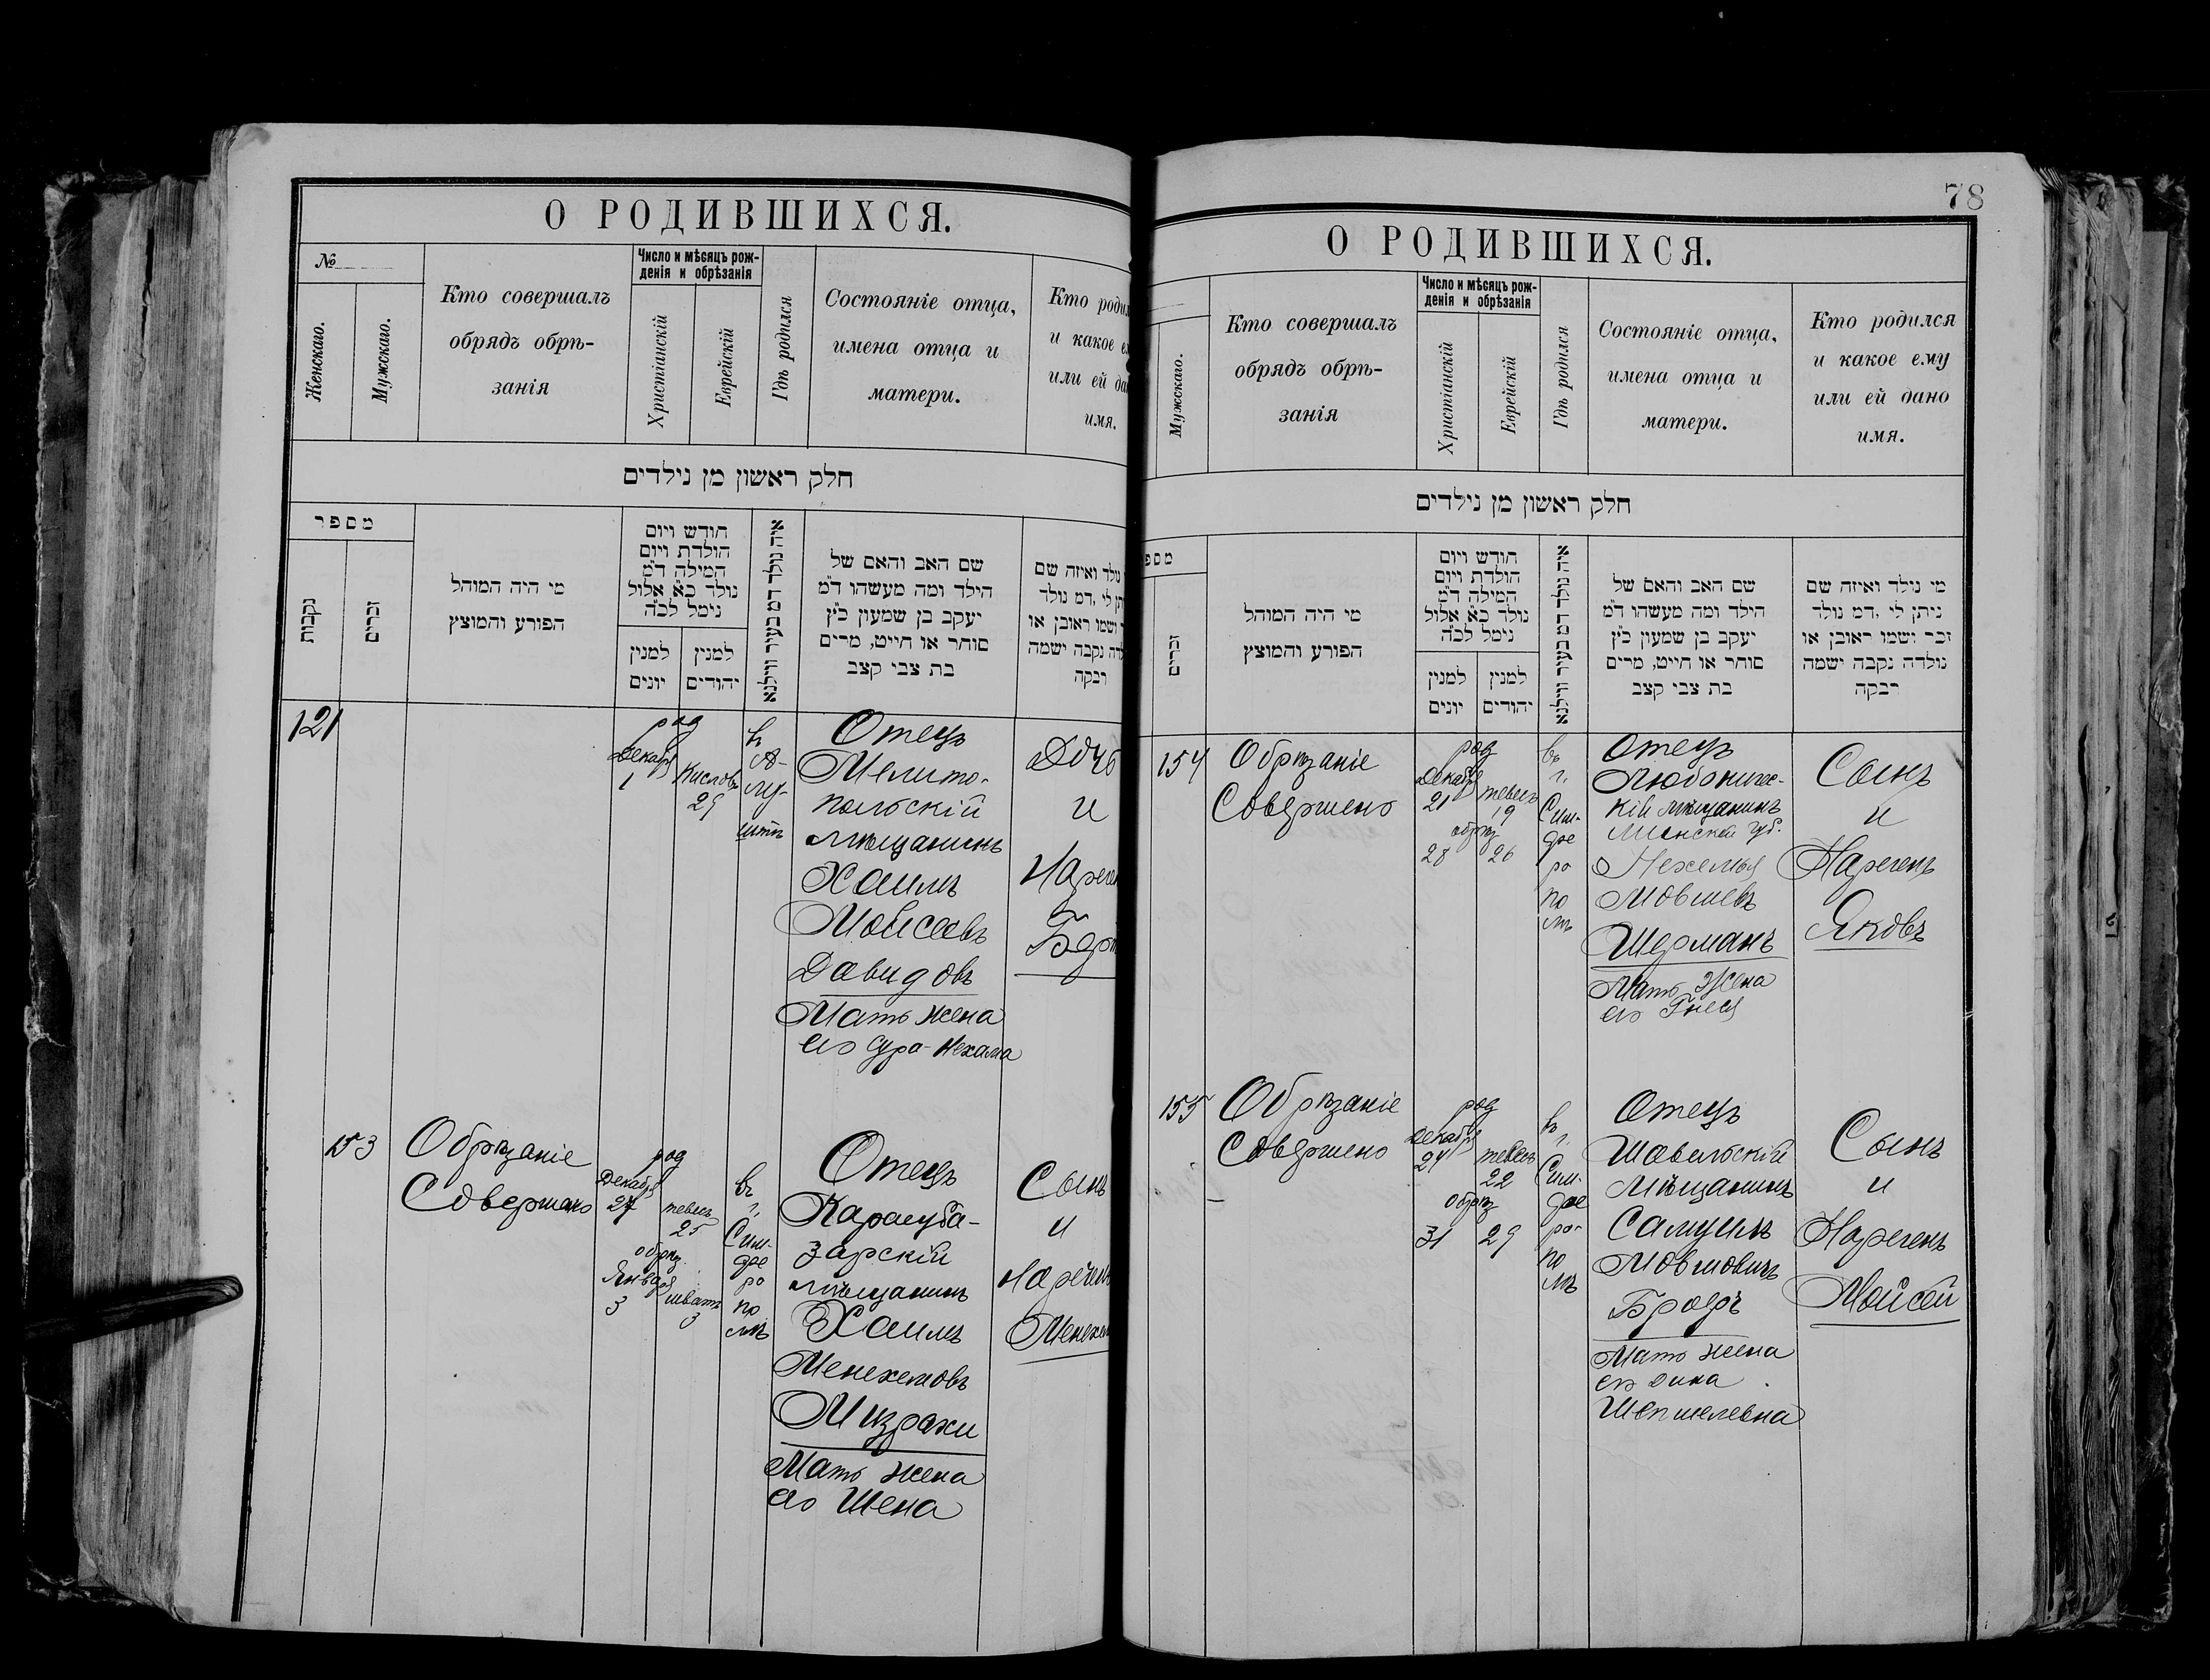 О РОДИВШИХСЯ.
№
Женскаго.
Мужскаго.
Кто совершалъ
обрядъ обрѣ-
занія
Число и мѣсяцъ рож-
денія и обрѣзанія
Христіанскій
Еврейскій
Гдѣ родился
Состояніе отца,
имена отца и
матери.
Кто
и какое
или ей
имя.
חלק ראשון מן נילדים
מספר
נקבות
זכרים
מי היה המוהל
הפורע והמוצץ
חודש ויום
הולדת ויום
המילה ד״מ
נולד כ״א אלול
נימל לכ״ה
למנין
יונים
למנין
יהודים
איה נולד דמ בעיר ווילנא
שם האב והאם של
הילד ומה מעשהו ד״מ
יעקב בן שמעון כ״ץ
סוחר או חייט, מרים
בת צבי קצב
ואיזה שם
לי, דמ נולד
ושמו ראובן או
נקבה ישמה
רבקה
121
род
Декабр
1
Кислов
29
в
А-
лу-
штѣ
Отецъ
Мелито-
польскій
мѣщанинъ
Хаимъ
Мовсеевъ
Давидовъ
Мать жена
его Сура-Нехама
Дочь
и
153
Обрѣзаніе
Совершено
род
Декабря
27
тевесъ
25
обрѣз.
Января
3
шватъ
3
въ
г.
Сим-
фе
ро
по
лѣ
Отецъ
Карасуба-
зарскій
мѣщанинъ
Хаимъ
Менехемовъ
Мизрахи
Мать жена
его Шена
Сынъ
и
78
О РОДИВШИХСЯ.
Мужскаго.
Кто совершалъ
обрядъ обрѣ-
занія
Число и мѣсяцъ рож-
денія и обрѣзанія
Христіанскій
Еврейскій
Гдѣ родился
Состояніе отца,
имена отца и
матери.
Кто родился
и какое ему
или ей дано
имя.
חלק ראשון מן נילדים
מספ
זכרים
מי היה המוהל
הפורע והמוצץ
חודש ויום
הולדת ויום
המילה ד״מ
נולד כ״א אלול
נימל לכ״ה
למנין
יונים
למנין
יהודים
איה נולד דמ בעיר ווילנא
שם האב והאם של
הילד ומה מעשהו ד״מ
יעקב בן שמעון כ״ץ
סוחר או חייט, מרים
בת צבי קצב
מי נילד ואיזה שם
ניתן לי, דמ נולד
זכר ושמו ראובן או
נולדה נקבה ישמה
רבקה
154
Обрѣзаніе
Совершено
род
Декабр
21
тевесъ
19
обрѣз
28
26
въ
г.
Сим-
фе
ро
по
лѣ
Отецъ
кій мѣщанинъ
Минской губ.
Нехемья
Мовшевъ
Шерманъ
Мать жена
его Гнеся
Сынъ
и
Нареченъ
Яковъ
155
Обрѣзаніе
Совершено
род
Декабря
24
тевесъ
22
обрѣз
31
29
въ
г.
Сим-
фе
ро-
по
лѣ
Отецъ
Шавельскій
мѣщанинъ
Самуилъ
Мовшовичъ
Бродъ
Мать жена
его Дина
Шепшелевна
Сынъ
и
Нареченъ
Мойсей